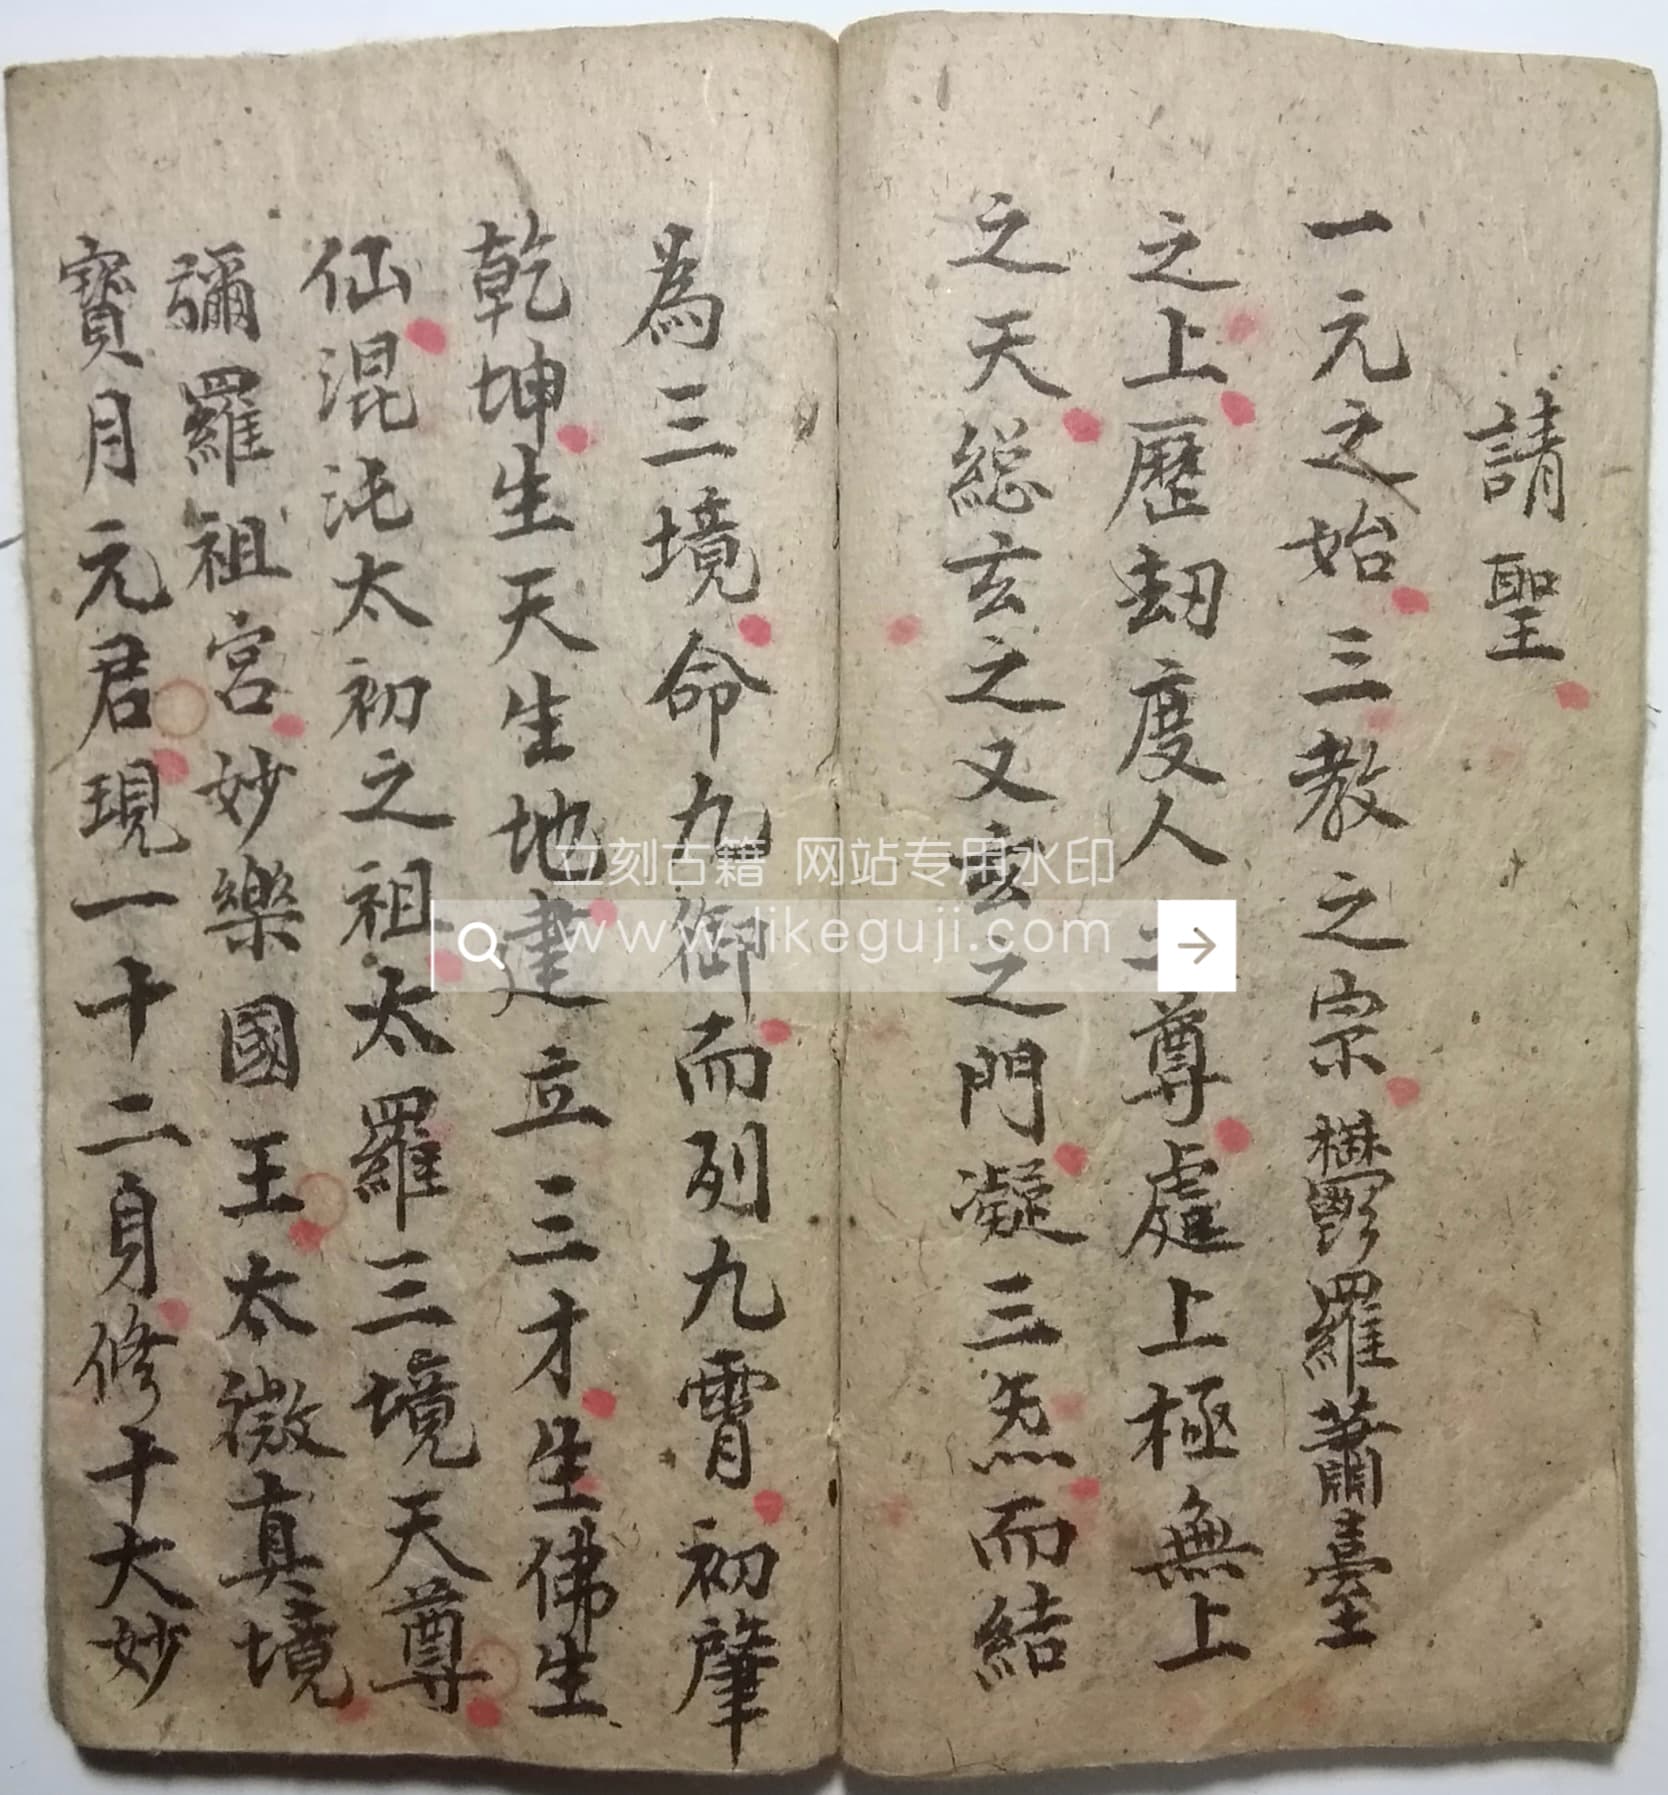 請聖
一元之始三教之宗鬱羅蕭臺
之上歷劫度人 尊處上極無上
之天總玄之又玄之門凝三炁而結
為三境命九御而列九霄初肇
乾坤生天生地建立三才生佛生
仙混沌太初之祖太羅三境天尊
彌羅祖宮妙樂國王太微真境
寳月元君現一十二身修十大妙
立刻古籍 网站专用水印
www.likeguji.com